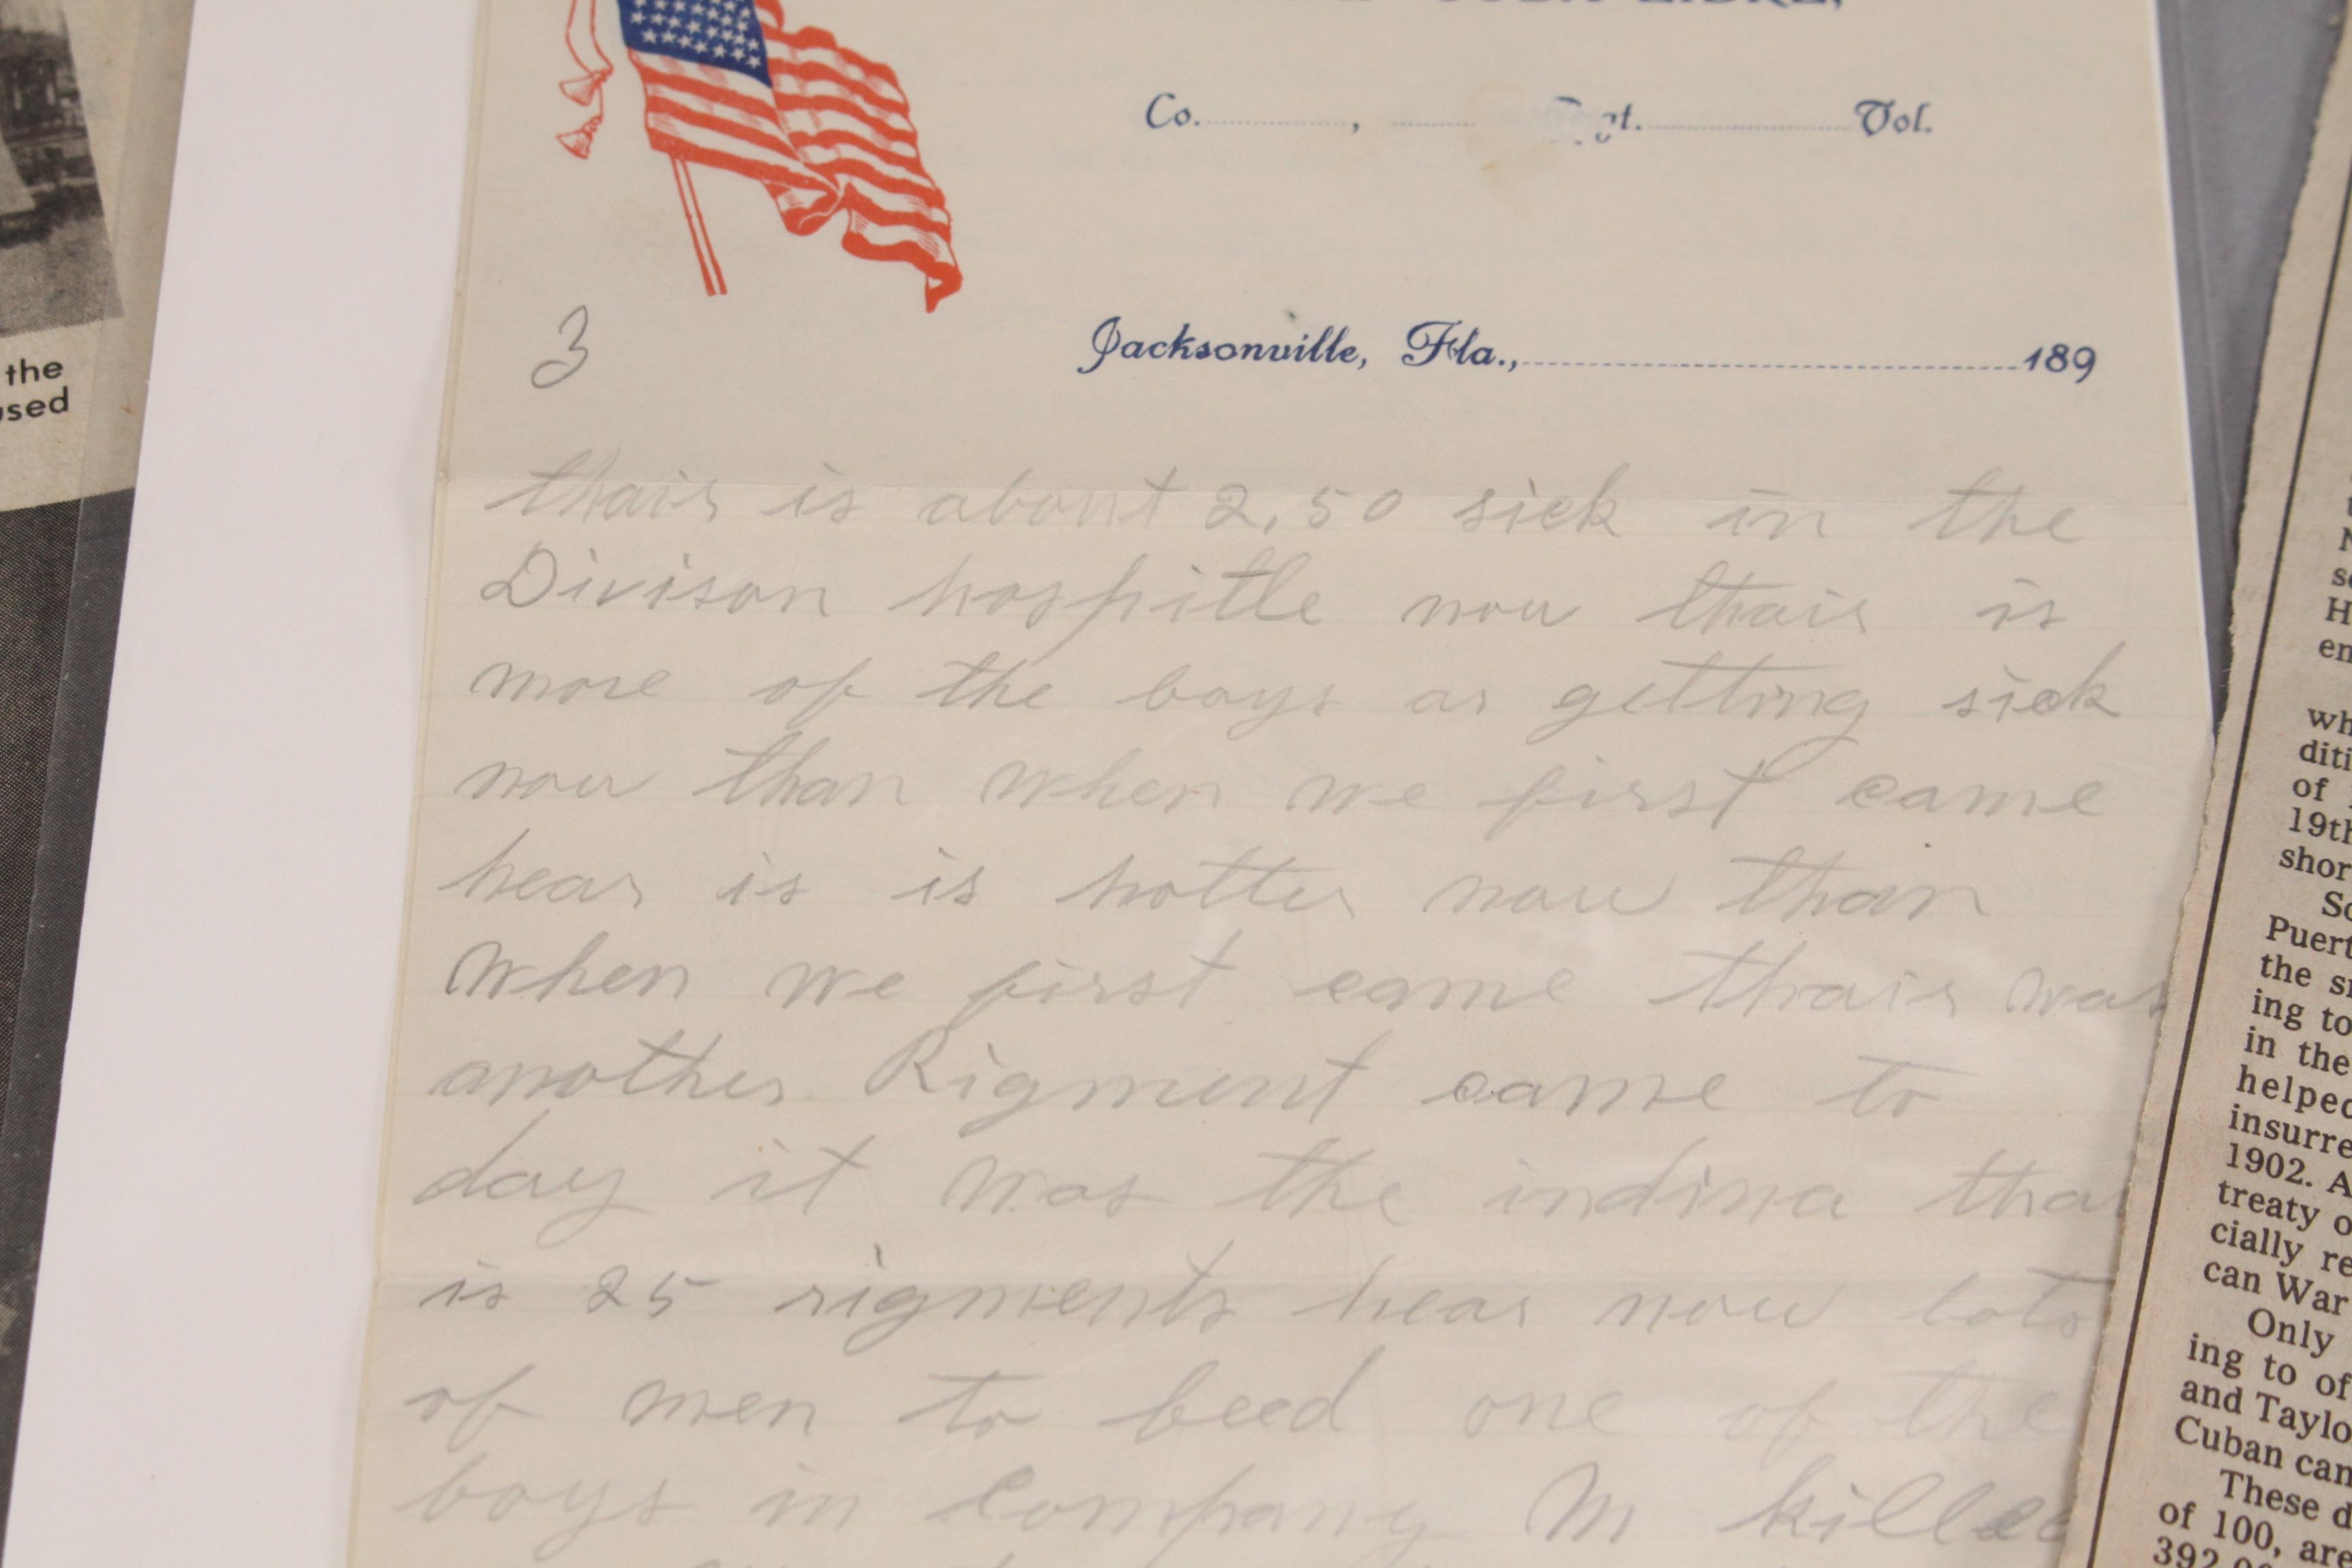 CUBA LIBRE,
Co. , gt. Vol.
Jacksonville, Fla., 189
3
thair is about 2,50 sick in the
Divison hospitle now thair is
more of the boys ar getting sick
now than when we first came
hear is is hotter now than
when we first came thair was
another Rigment came to
day it was the indina
is 25 rigments hear now lots
of men to beed one of the
boys in Company M
the
used
of
19th
shor
Puert
the
ing to
in the
helped
insurre
1902. A
treaty o
cially re
can War
Only
ing to of
and Taylo
Cuban can
These d
of 100, are
392